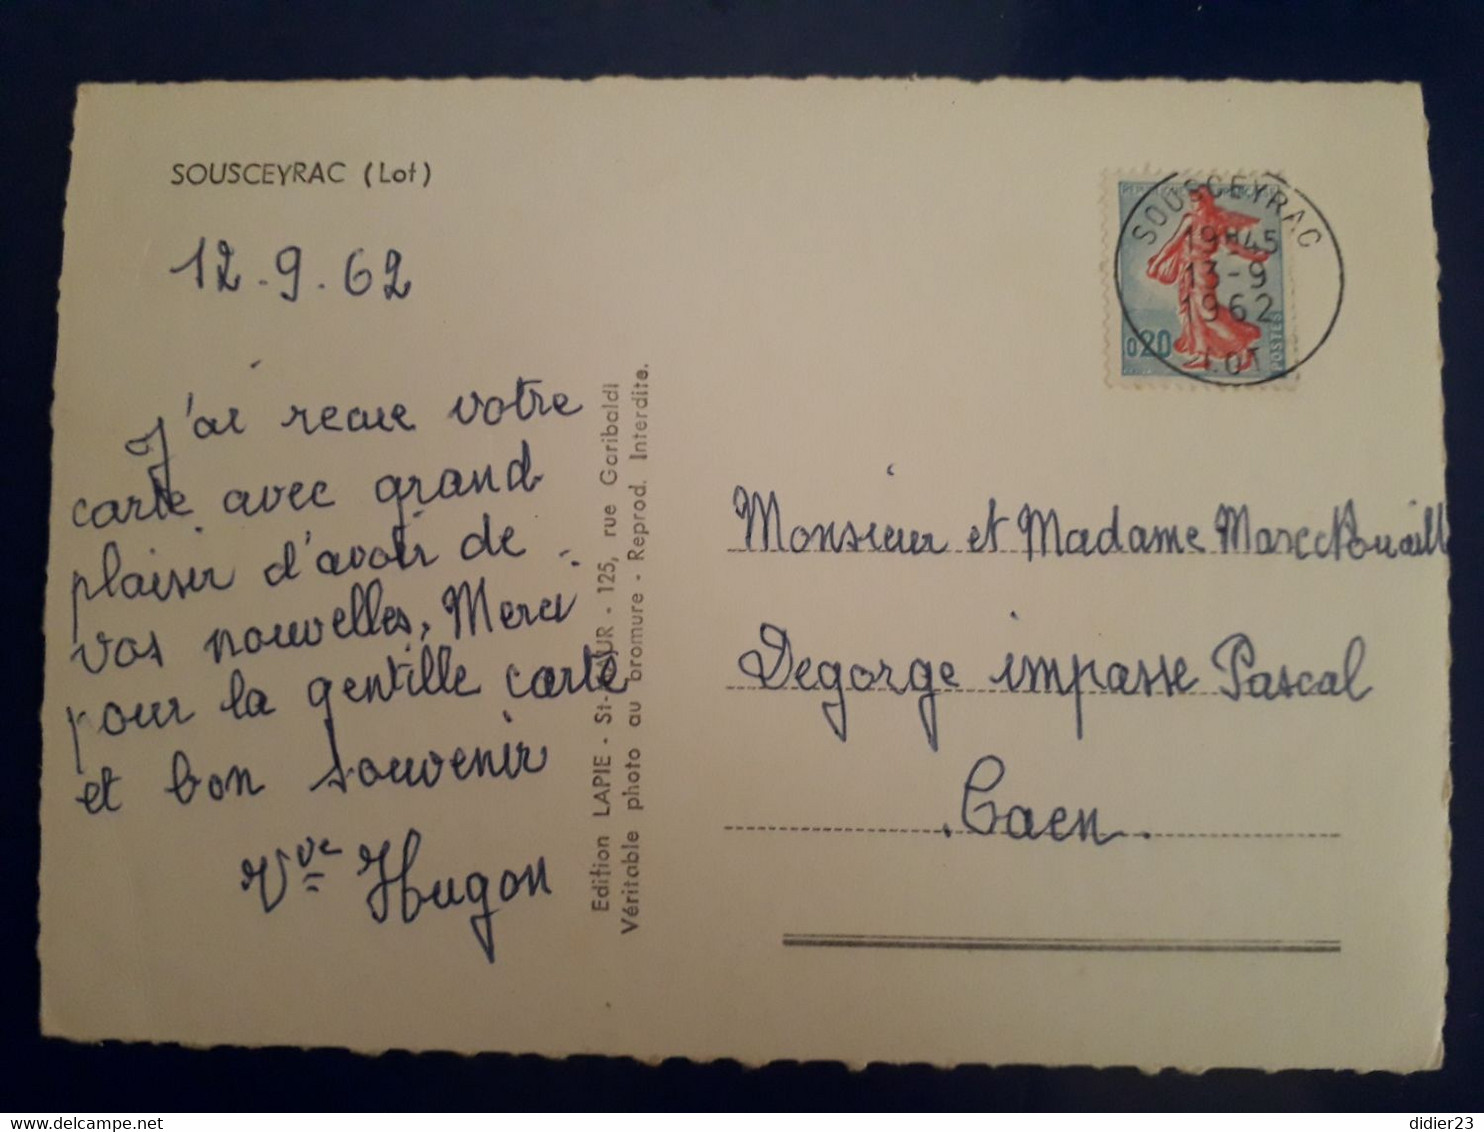 SOUSCEYRAC (Lot)
12.9.62
J'ai recue votre
carte avec grand
plaisir d'avoir de
vos nouvelles. Merci
pour la gentille carte
et bon souvenir
Vve Hugon
Edition LAPIE - St-MAUR - 125, rue Garibaldi
Véritable photo au bromure - Reprod. Interdite.
SOUSCEYRAC
19H45
13-9
1962
LOT
0,20
POSTES
Monsieur et Madame Marcel
Degorge impasse Pascal
Caen.
didier23